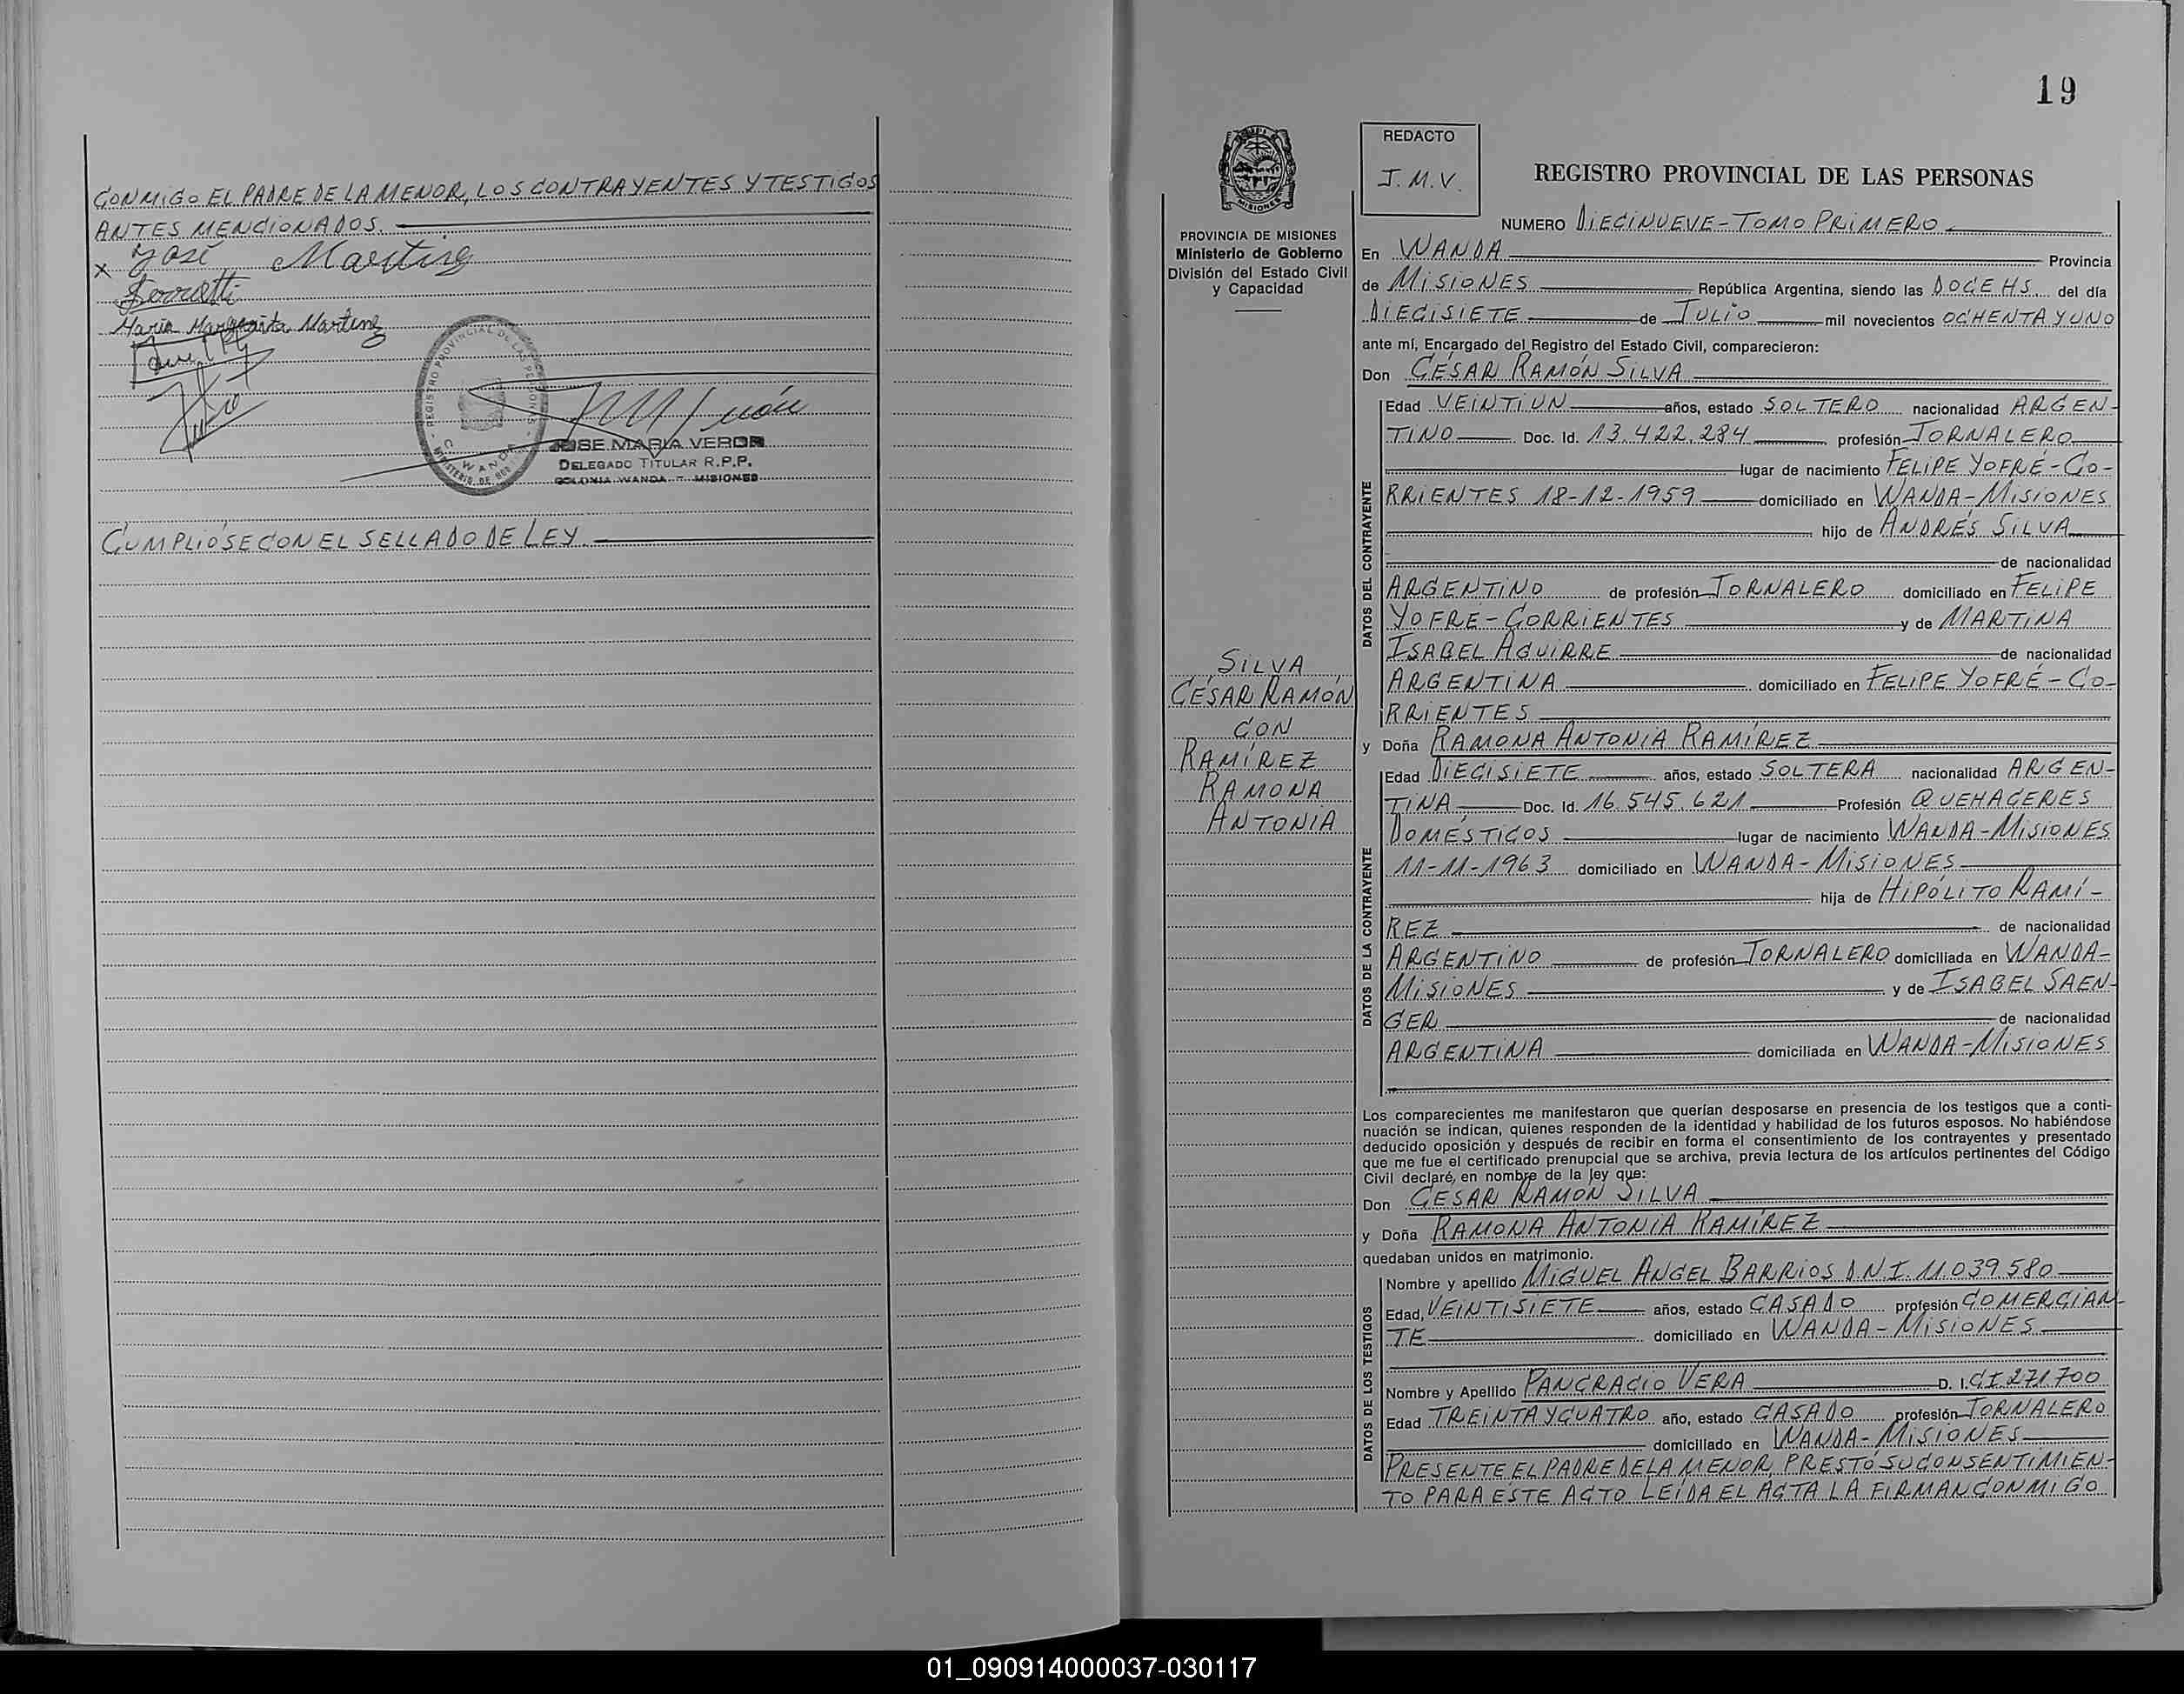 CONMIGO EL PADRE DE LA MENOR, LOS CONTRAYENTES Y TESTIGOS
ANTES MENCIONADOS.
x José Martinez
Ferretti
Maria Margarita Martinez
REGISTRO PROVINCIAL DE LAS PERSONAS
C. WANDA
MINISTERIO DE GOB
JOSE MARIA VERON
DELEGADO TITULAR R.P.P.
COLONIA WANDA - MISIONES
CUMPLIÓSE CON EL SELLADO DE LEY.
19
MISIONES
PROVINCIA DE MISIONES
Ministerio de Gobierno
División del Estado Civil
y Capacidad
SILVA
CÉSAR RAMÓN
CON
RAMÍREZ
RAMONA
ANTONIA
REDACTO
J.M.V.
REGISTRO PROVINCIAL DE LAS PERSONAS
NUMERO DIECINUEVE - TOMO PRIMERO.
En WANDA Provincia
de MISIONES República Argentina, siendo las DOCE HS. del día
DIECISIETE de JULIO mil novecientos OCHENTA Y UNO
ante mí, Encargado del Registro del Estado Civil, comparecieron:
Don CÉSAR RAMÓN SILVA
DATOS DEL CONTRAYENTE
Edad VEINTIUN años, estado SOLTERO nacionalidad ARGEN-
TINO Doc. Id. 13.422.284 profesión JORNALERO
lugar de nacimiento FELIPE YOFRÉ - CO-
RRIENTES 18-12-1959 domiciliado en WANDA - MISIONES
hijo de ANDRÉS SILVA
de nacionalidad
ARGENTINO de profesión JORNALERO domiciliado en FELIPE
YOFRÉ - CORRIENTES y de MARTINA
ISABEL AGUIRRE de nacionalidad
ARGENTINA domiciliado en FELIPE YOFRÉ - CO-
RRIENTES
y Doña RAMONA ANTONIA RAMÍREZ
DATOS DE LA CONTRAYENTE
Edad DIECISIETE años, estado SOLTERA nacionalidad ARGEN-
TINA Doc. Id. 16.545.621 Profesión QUEHACERES
DOMÉSTICOS lugar de nacimiento WANDA - MISIONES
11-11-1963 domiciliado en WANDA - MISIONES
hija de HIPÓLITO RAMÍ-
REZ de nacionalidad
ARGENTINO de profesión JORNALERO domiciliada en WANDA -
MISIONES y de ISABEL SAEN-
GER de nacionalidad
ARGENTINA domiciliada en WANDA - MISIONES
Los comparecientes me manifestaron que querían desposarse en presencia de los testigos que a conti-
nuación se indican, quienes responden de la identidad y habilidad de los futuros esposos. No habiéndose
deducido oposición y después de recibir en forma el consentimiento de los contrayentes y presentado
que me fue el certificado prenupcial que se archiva, previa lectura de los artículos pertinentes del Código
Civil declaré, en nombre de la ley que:
Don CÉSAR RAMÓN SILVA
y Doña RAMONA ANTONIA RAMÍREZ
quedaban unidos en matrimonio.
DATOS DE LOS TESTIGOS
Nombre y apellido MIGUEL ANGEL BARRIOS D N I. 11.039.580
Edad, VEINTISIETE años, estado CASADO profesión COMERCIAN-
TE domiciliado en WANDA - MISIONES
Nombre y Apellido PANCRACIO VERA D. I. C.I. 271.700
Edad TREINTA Y CUATRO año, estado CASADO profesión JORNALERO
domiciliado en WANDA - MISIONES
PRESENTE EL PADRE DE LA MENOR, PRESTÓ SU CONSENTIMIEN-
TO PARA ESTE ACTO. LEÍDA EL ACTA LA FIRMAN CONMIGO
01_090914000037-030117